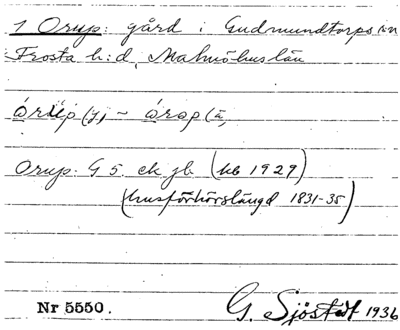 1 Orup: gård i Gudmundtorps sn
Frosta h:d, Malmöhuslän
órùp (y) ~ órap (ä)
Orup. G 5. ek jb (kb 1929)
(husförhörslängd 1831-35)
Nr 5550. G. Sjöstedt 1936